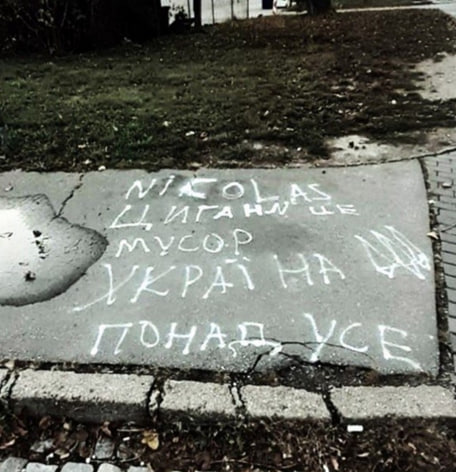 NIKOLAS
ЦИГАНИ ЦЕ
МУСОР
УКРАЇНА
ПОНАД УСЕ